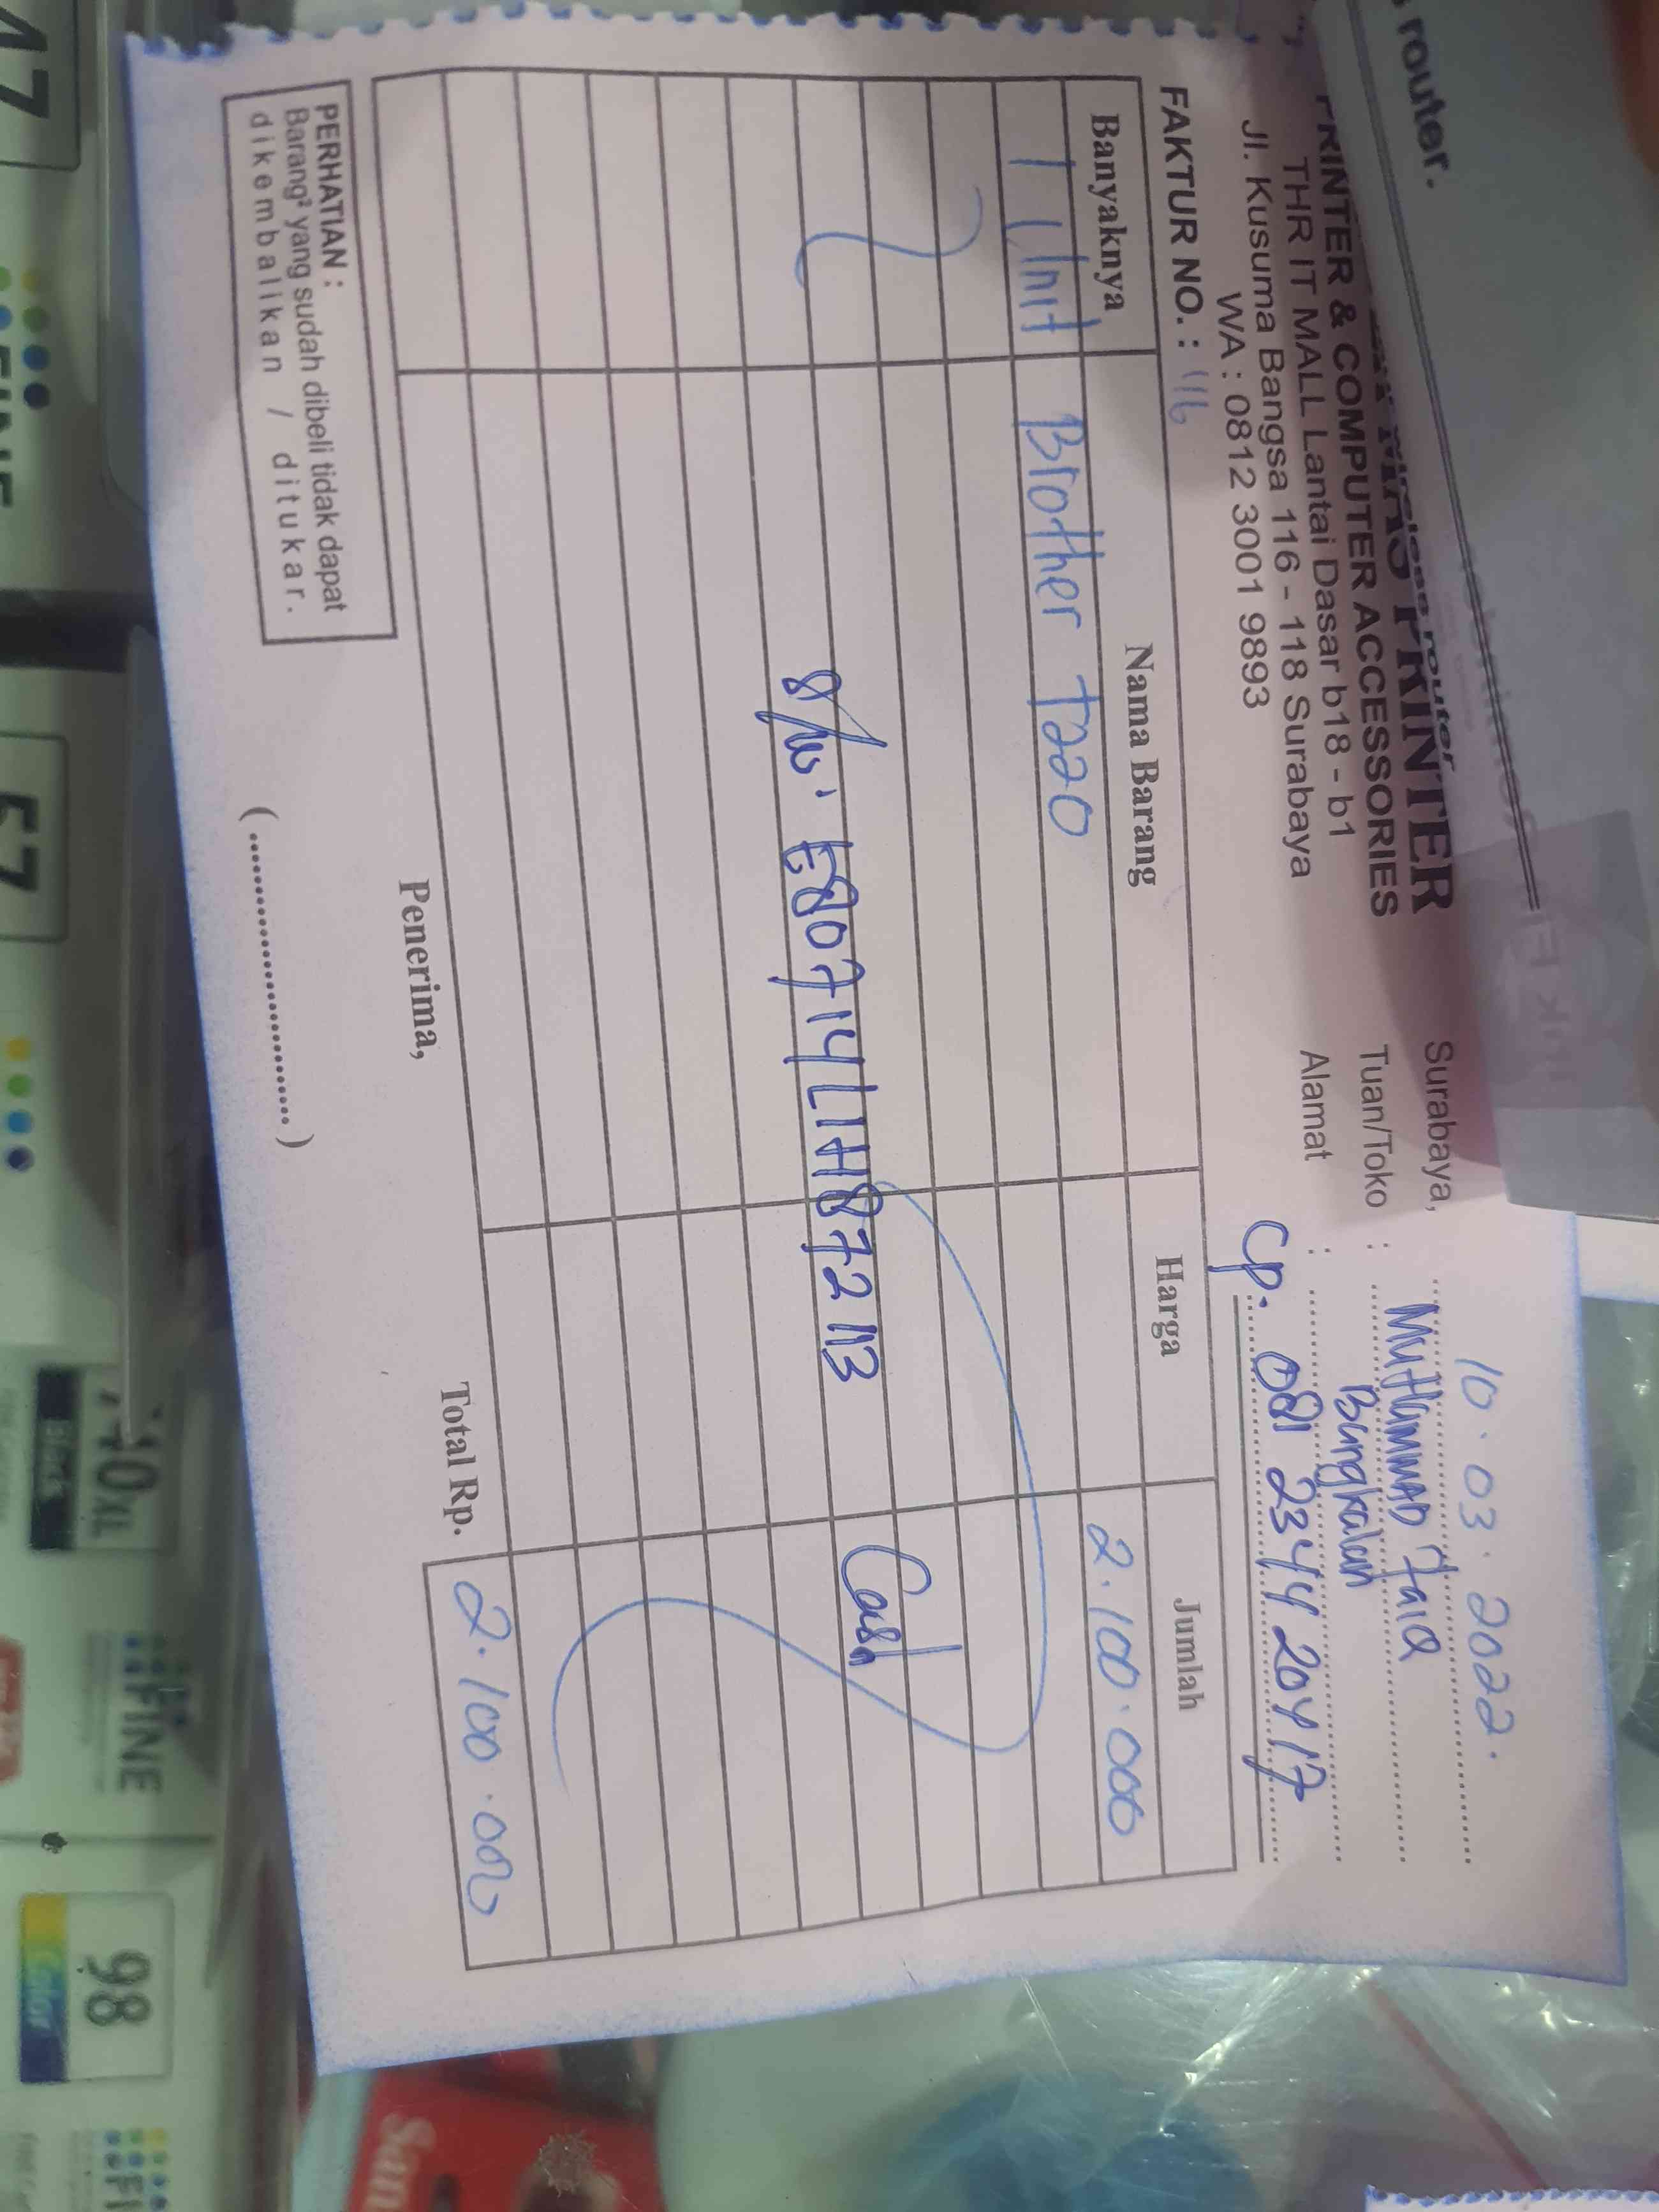 s router.
PRINTER
PRINTER & COMPUTER ACCESSORIES
THR IT MALL Lantai Dasar b18 - b1
Jl. Kusuma Bangsa 116 - 118 Surabaya
WA : 0812 3001 9893
Surabaya, 10.03.2022.
Tuan/Toko : Muhammad Faiq
Alamat : Bangkalan
Cp. 081 2344 20417
FAKTUR NO. : 116
Banyaknya Nama Barang Harga Jumlah
1 Unit Brother T220 2.100.000
S/N: E80714L1H872113 Cash
Total Rp. 2.100.000
Penerima,
(........................)
PERHATIAN :
Barang² yang sudah dibeli tidak dapat
dikembalikan / ditukar.
47
57
FINE
98
Color
San